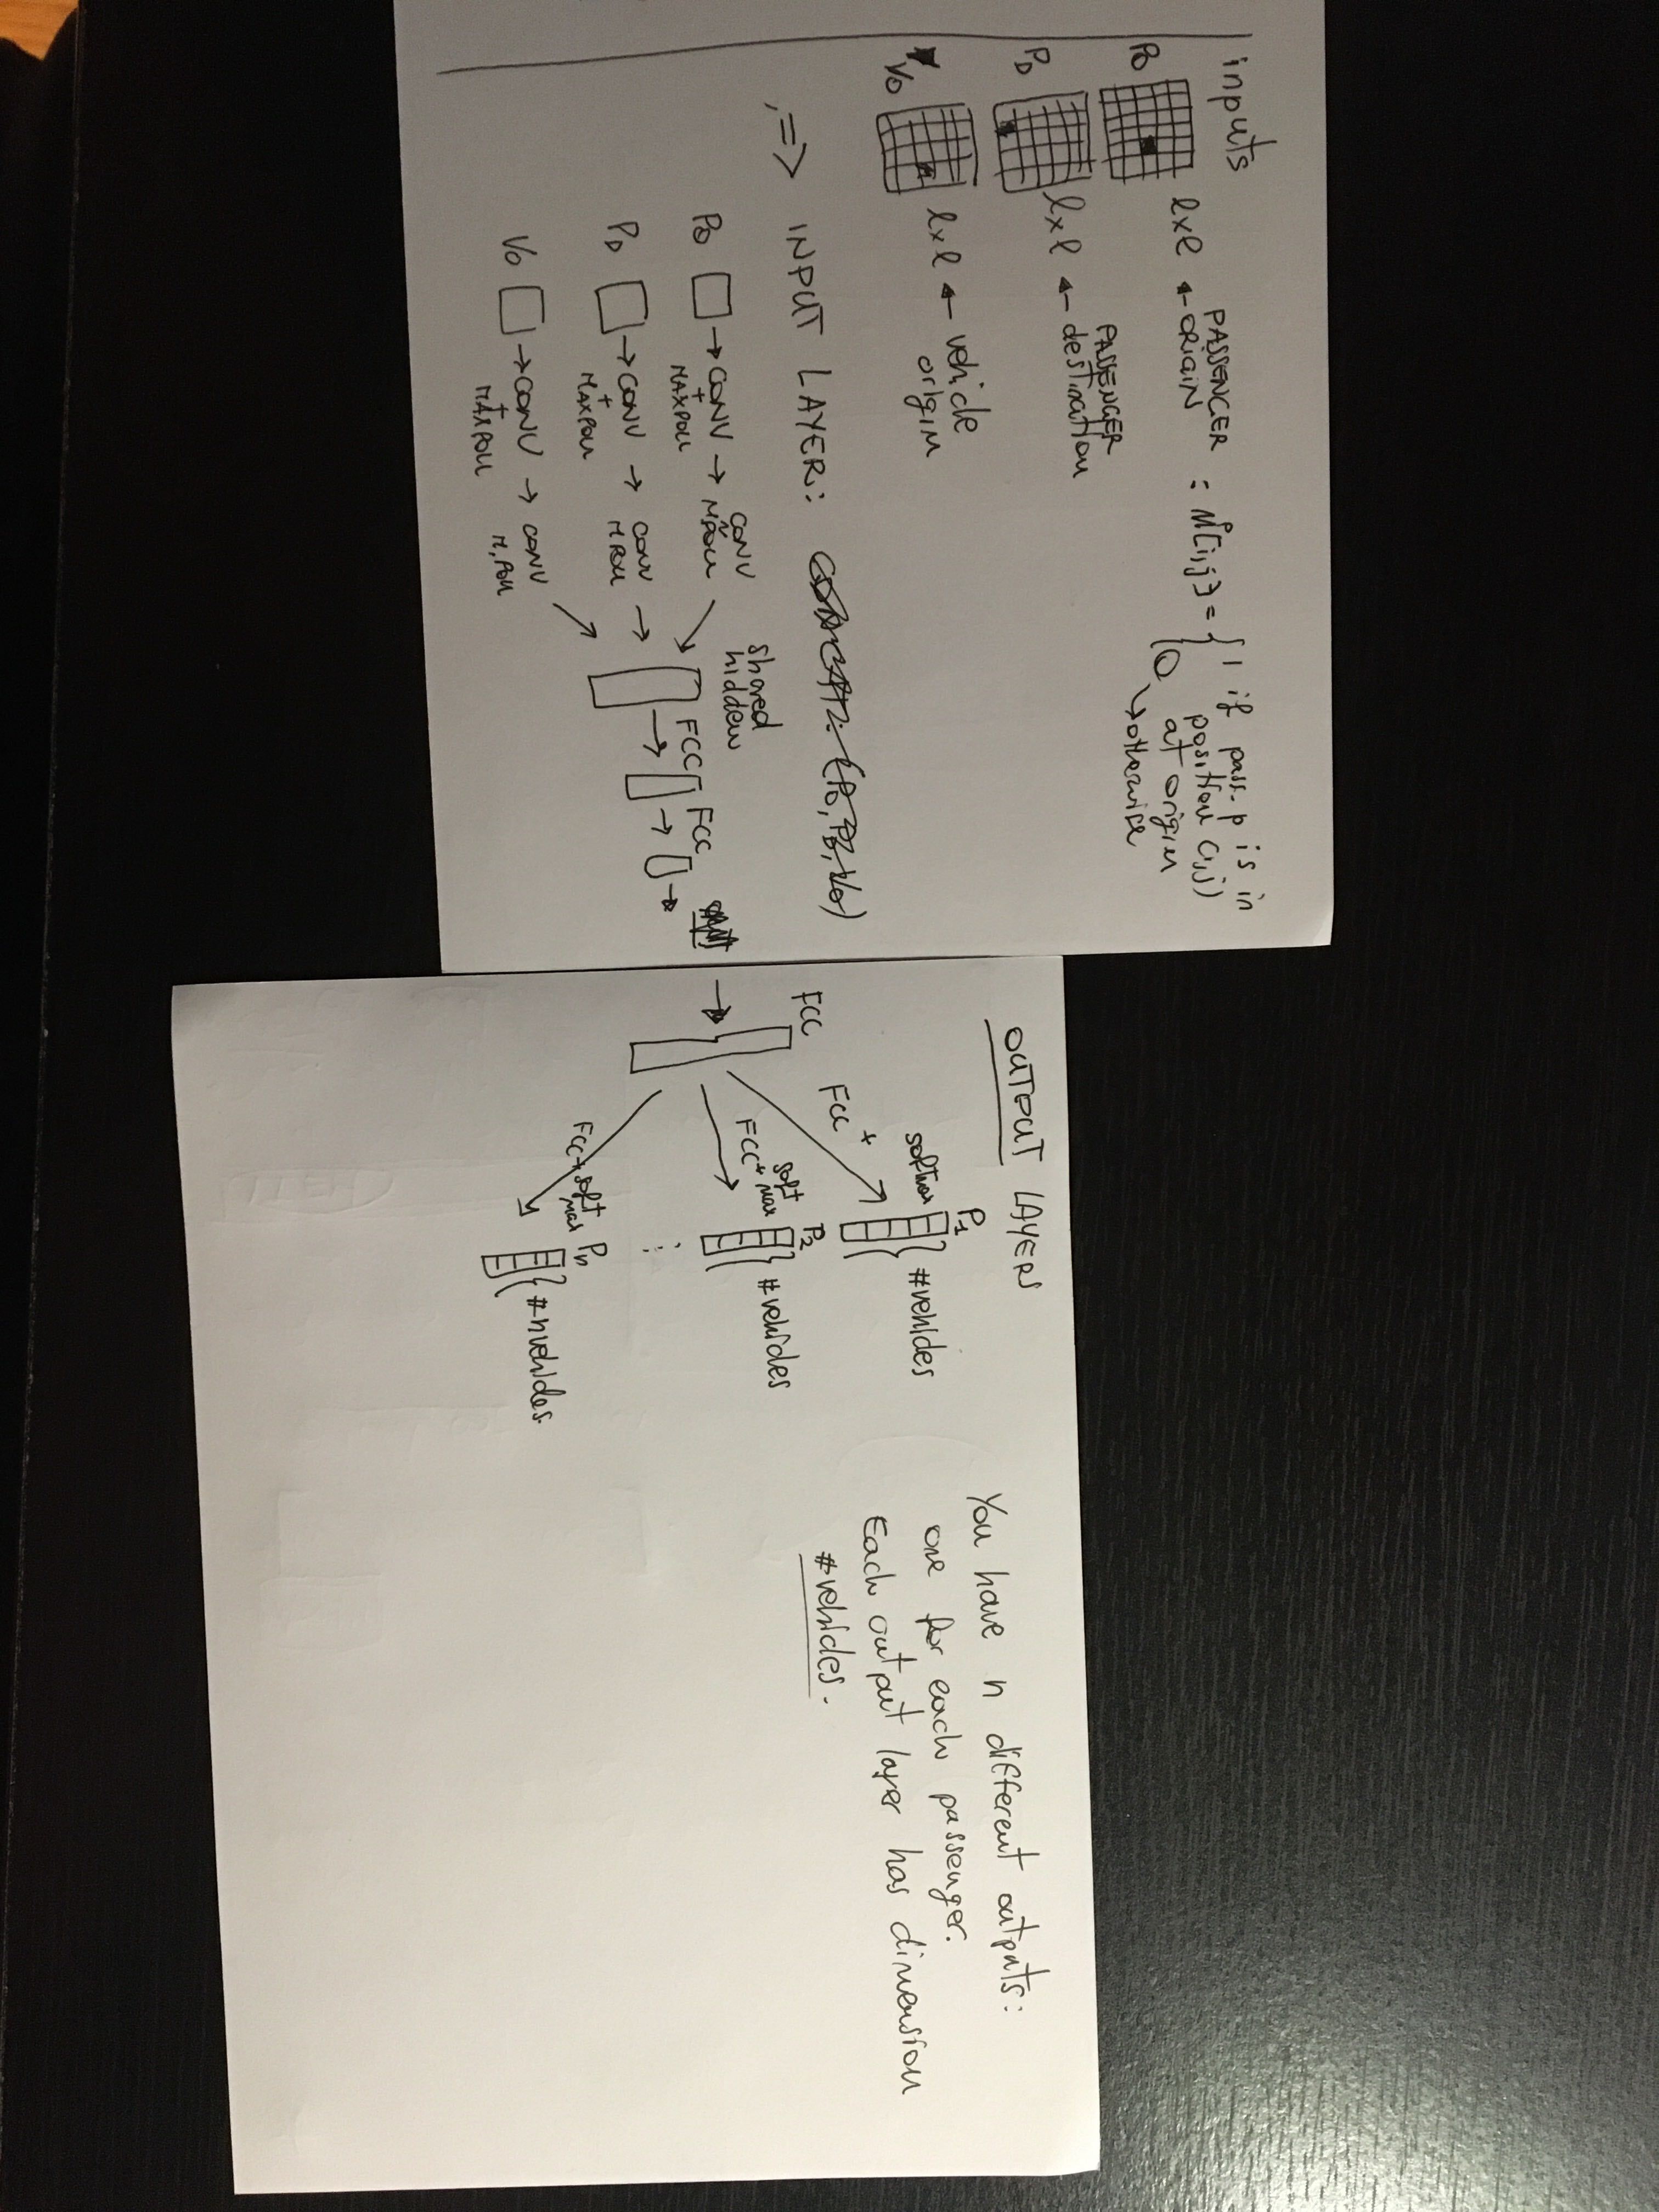 inputs
Po lxl ← PASSENGER ORIGIN : M^p[i,j] = { 1 if pass. p is in
position (i,j)
at origin
0 ↘ otherwise
PD lxl ← PASSENGER destination
Vo lxl ← vehicle origin
=> INPUT LAYER: (Po, PD, Vo)
Po → CONV + MAXPOLL → CONV MPOLL
PD → CONV + MAXPOLL → CONV M POLL →
Vo → CONV + MAXPOLL → CONV M, POLL
shared
hidden
FCC → FCC →
OUTPUT LAYERS
FCC
FCC + softmax P1 #vehicles
FCC + softmax P2 #vehicles
⋮
FCC + softmax Pn #nvehicles
You have n different outputs:
one for each passenger.
Each output layer has dimension
#vehicles.